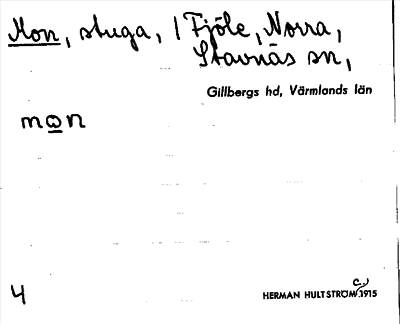 Mon, stuga, / Fjöle, Norra,
Stavnäs sn,
Gillbergs hd, Värmlands län
mωn
4
HERMAN HULTSTRÖM c. 1915